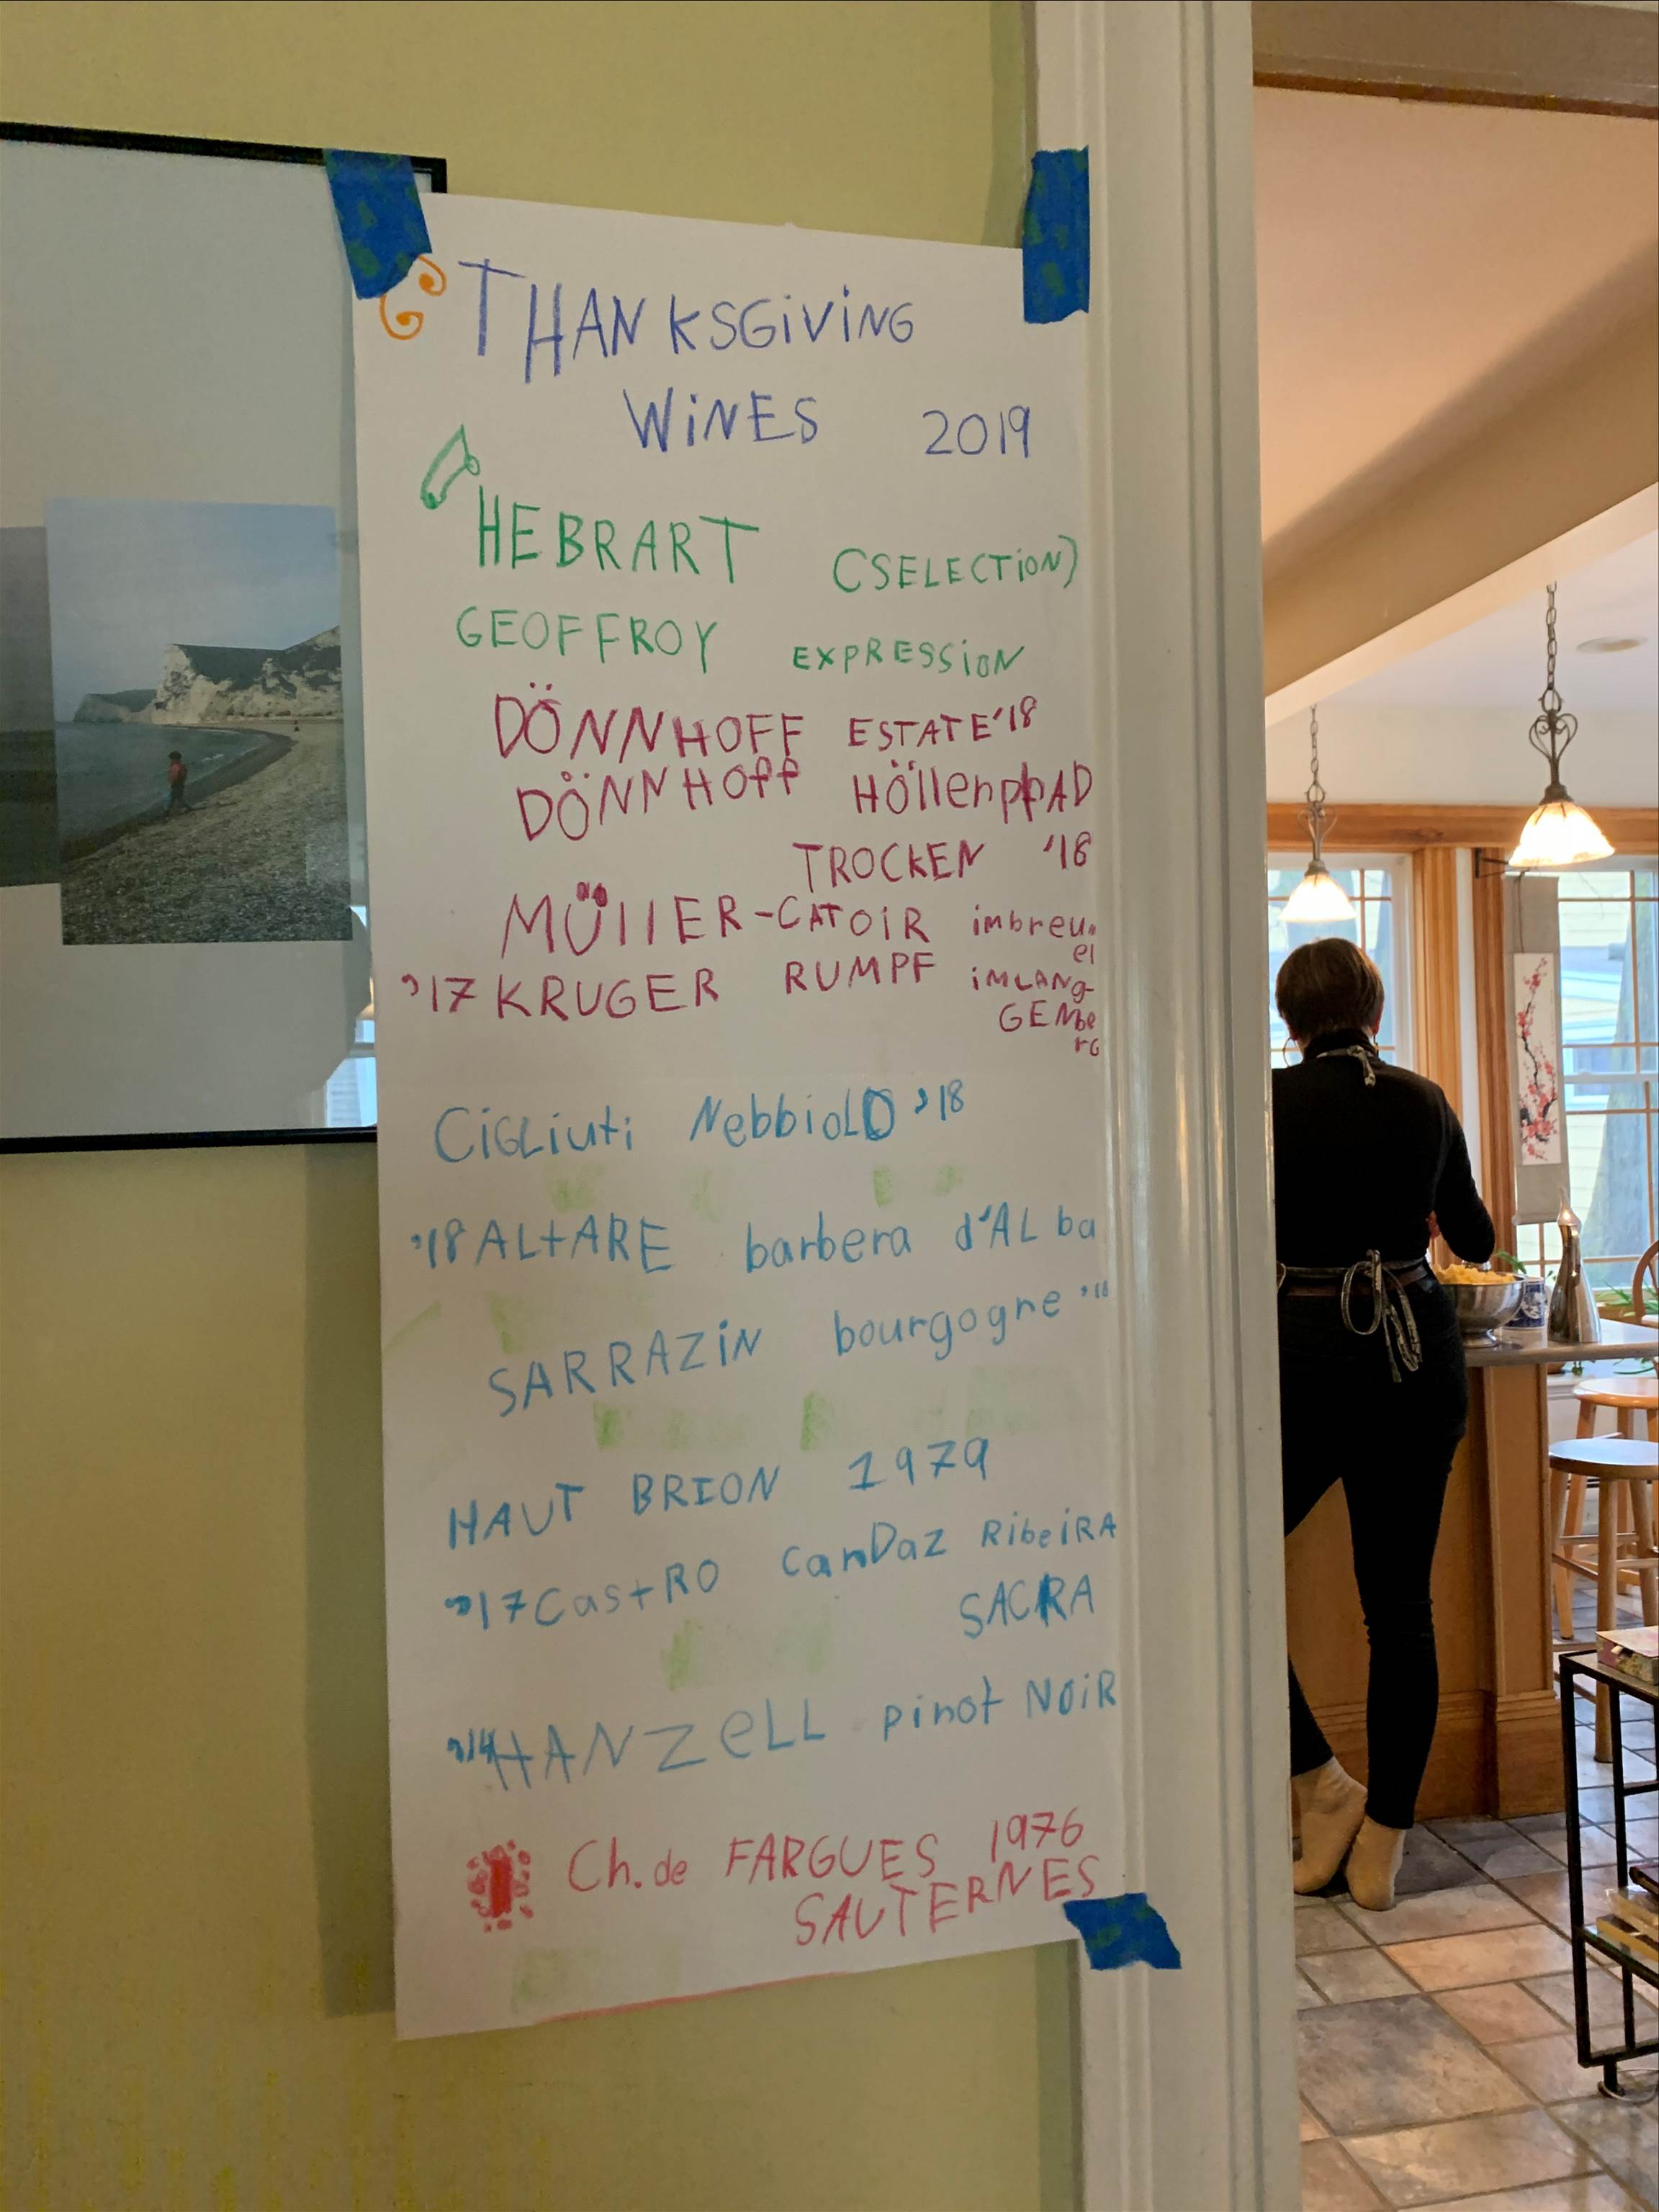 THANKSGiViNG
WiNES 2019
HEBRART (SELECTiON)
GEOFFROY EXPRESSiON
DÖNNHOFF ESTATE '18
DÖNNHOff HöllenpfAD
TROCKEN '18
MÜllER-CATOiR imbreu-
el
'17 KRUGER RUMPF iMLANg-
GENbe
rG
CiGLiuti NebbioLO '18
'18 ALtARE barbera d'ALba
SARRAZiN bourgogne '18
HAUT BRION 1979
'17 CastRO CanDaz RibeiRA
SACRA
'14 HANZeLL pinot NoiR
Ch. de FARGUES 1976
SAUTERNES